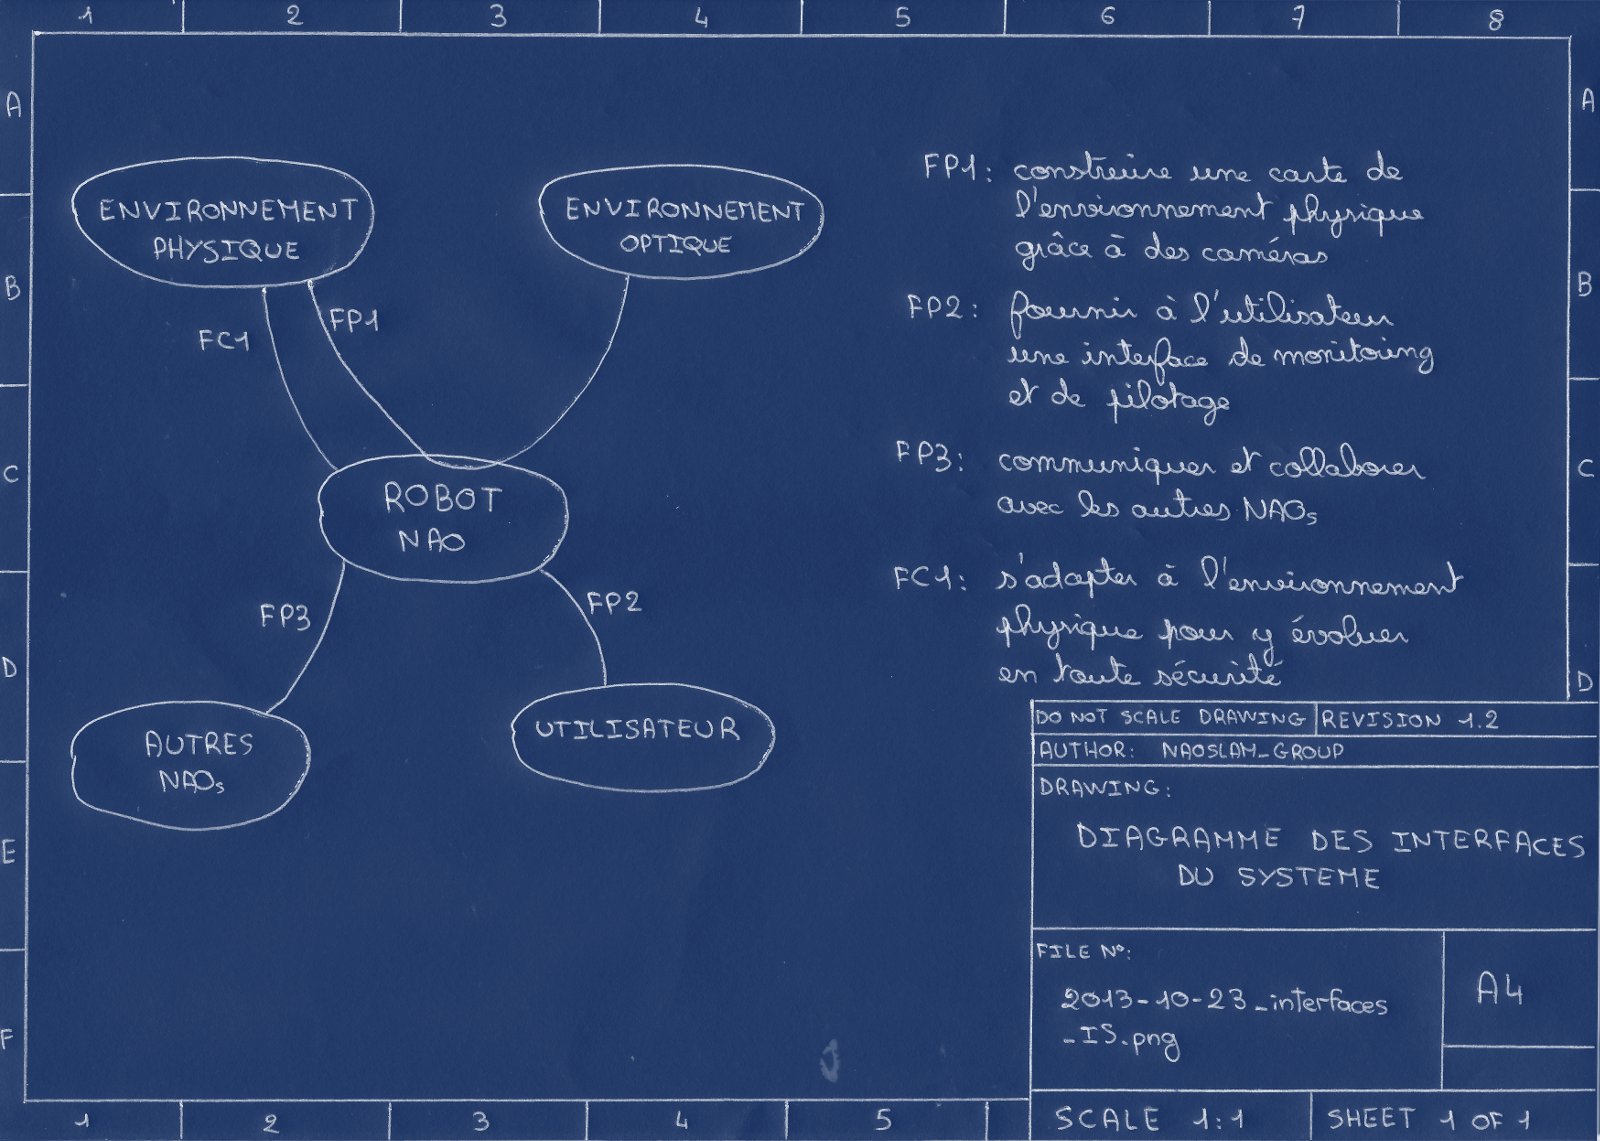 1 2 3 4 5 6 7 8
A A
B B
C C
D D
E
F
ENVIRONNEMENT
PHYSIQUE
ENVIRONNEMENT
OPTIQUE
FC1
FP1
ROBOT
NAO
FP3
FP2
AUTRES
NAOs
UTILISATEUR
FP1: construire une carte de
l'environnement physique
grâce à des caméras
FP2: fournir à l'utilisateur
une interface de monitoring
et de pilotage
FP3: communiquer et collaborer
avec les autres NAOs
FC1: s'adapter à l'environnement
physique pour y évoluer
en toute sécurité
DO NOT SCALE DRAWING REVISION 1.2
AUTHOR: NAOSLAM_GROUP
DRAWING:
DIAGRAMME DES INTERFACES
DU SYSTEME
FILE N°:
2013-10-23_interfaces
_IS.png
A4
SCALE 1:1 SHEET 1 OF 1
1 2 3 4 5